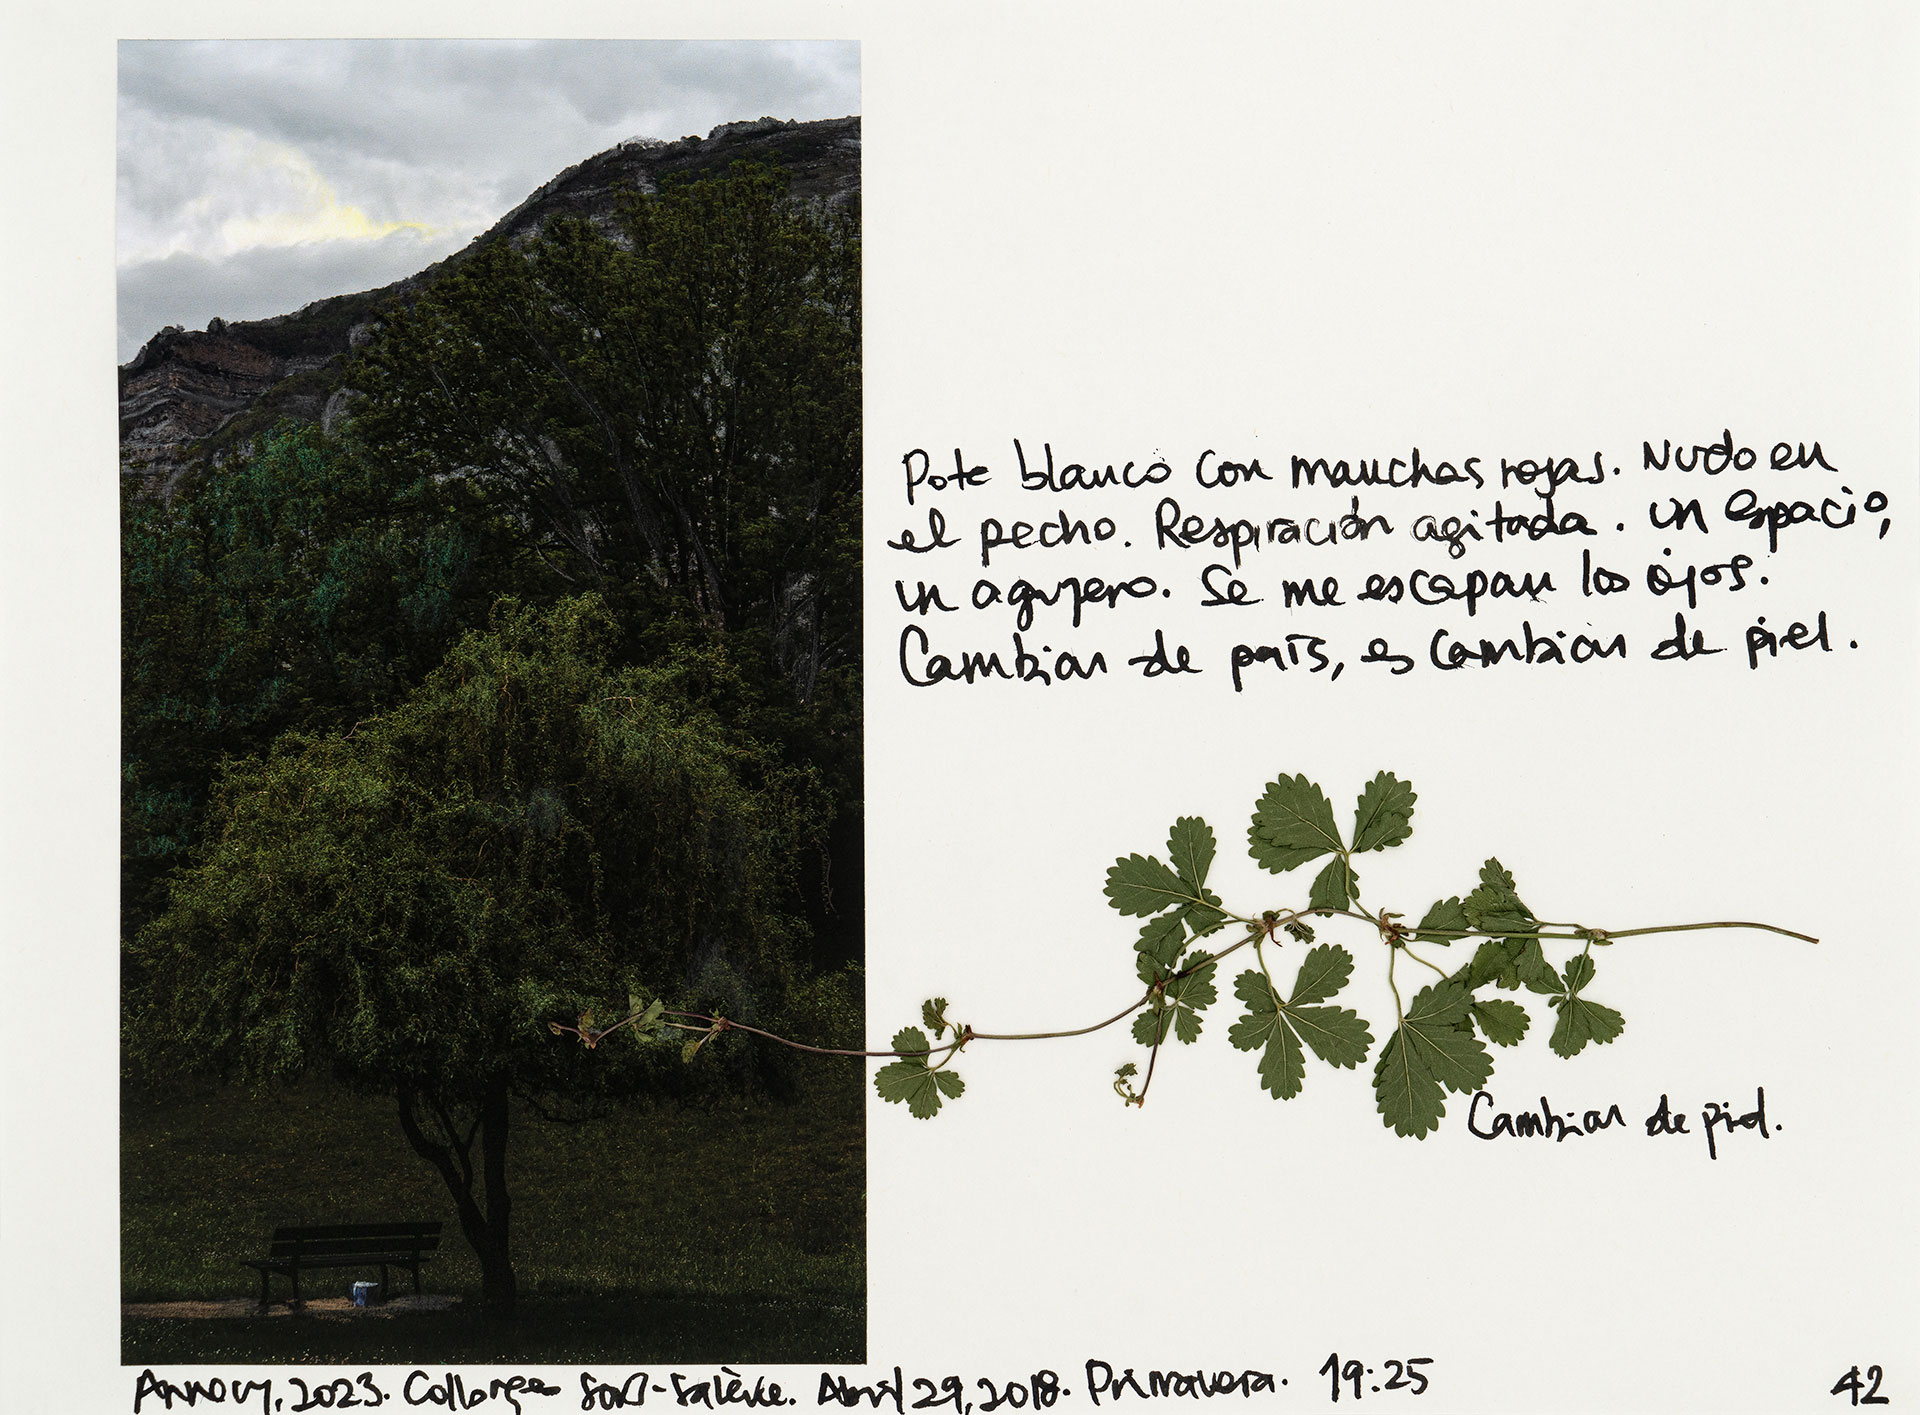 Pote blanco con manchas rojas. Nudo en
el pecho. Respiración agitada. Un espacio,
un agujero. Se me escapan los ojos.
Cambiar de país, es cambiar de piel.
Cambiar de piel.
Annecy, 2023. Collonges-sous-Salève. Abril 29, 2018. Primavera. 19:25
42